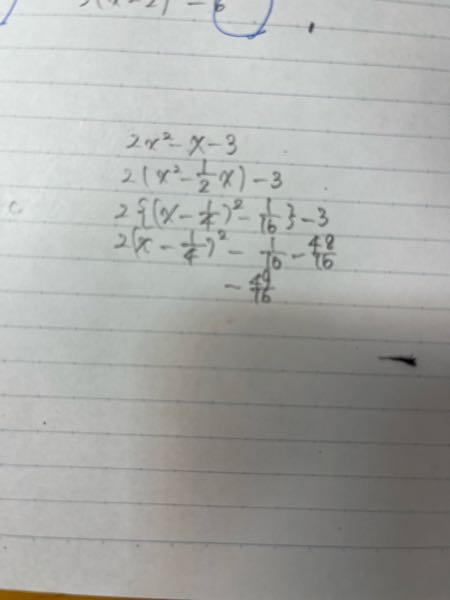 2x² - x - 3
2(x² - 1/2 x) - 3
2{(x - 1/4)² - 1/16} - 3
2(x - 1/4)² - 1/16 - 48/16
- 49/16